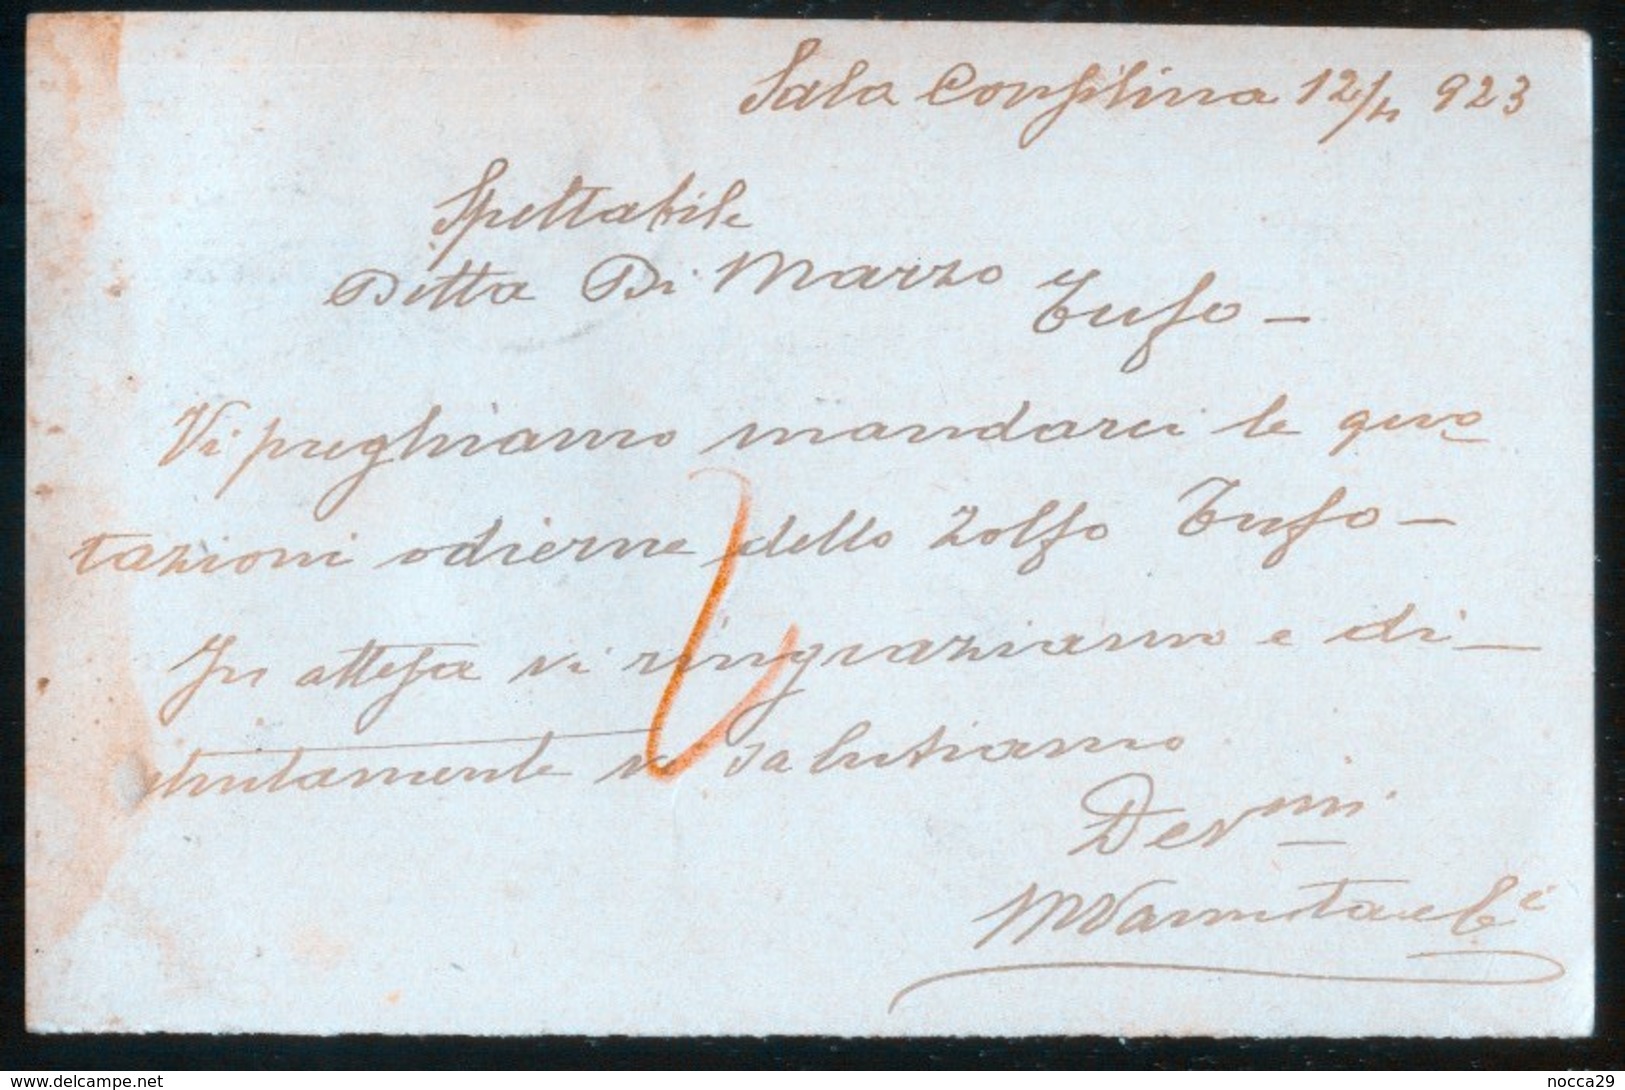 Sala Consilina 12/4 923
Spettabile
Ditta Di Marzo Tufo —
Vi preghiamo mandarci le quo
tazioni odierne dello Zolfo Tufo —
In attesa vi ringraziamo e di—
stintamente vi salutiamo
Dev mi
www.delcampe.net
nocca29